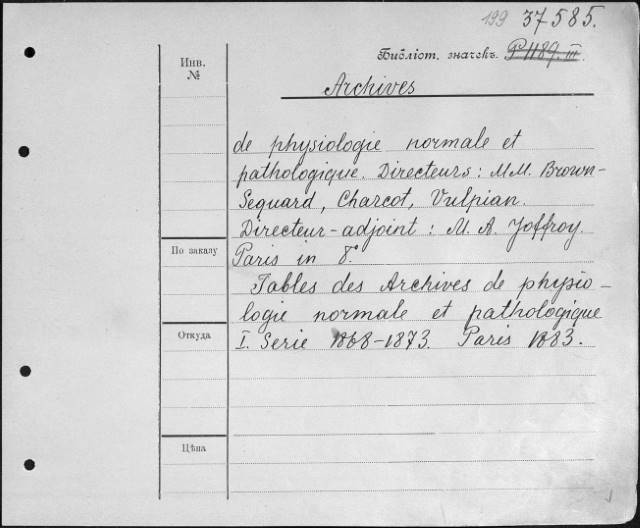 199 37585.
Инв.
№
Библіот. значекъ. P 1189. III.
Archives
de physiologie normale et
pathologique. Directeurs: MM. Brown-
Sequard, Charcot, Vulpian.
Directeur-adjoint: M. A. Joffroy.
По заказу
Paris in 8º.
Tables des Archives de physio-
logie normale et pathologique
Откуда
I. Serie 1868-1873. Paris 1883.
Цѣна